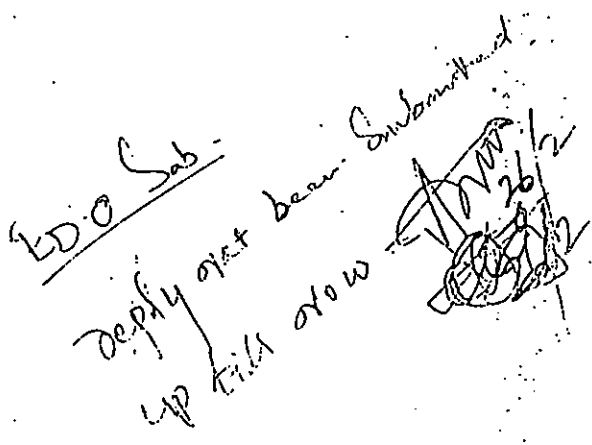 E.D.O Sab.
Reply not been Submitted
up till now
26/2